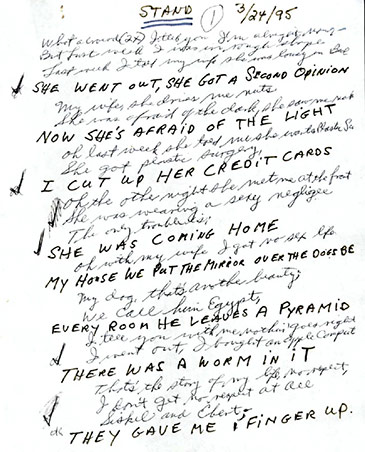 STAND 1 3/24/95
What a crowd (2x) I tell you I'm always
But last week I was in rough shape
Last week I told my wife she was lousy in Bed
SHE WENT OUT, SHE GOT A SECOND OPINION
My wife, she drives me nuts
She was afraid of the dark, she saw me
NOW SHE'S AFRAID OF THE LIGHT
oh last week she told me she wants Plastic Su
She got plastic surgery,
I CUT UP HER CREDIT CARDS
Oh the other night she met me at the front
She was wearing a sexy negligee
The only trouble is;
SHE WAS COMING HOME
oh with my wife I got no sex life
MY HOUSE WE PUT THE MIRROR OVER THE DOGS BE
My dog, that's another beauty;
we call him Egypt,
EVERY ROOM HE LEAVES A PYRAMID
I tell you with me nothing goes right
I went out, I bought an Apple Comput
THERE WAS A WORM IN IT
That's the story of my life, no respect,
I don't get no respect at all
Siskel and Ebert
THEY GAVE ME 1 FINGER UP.